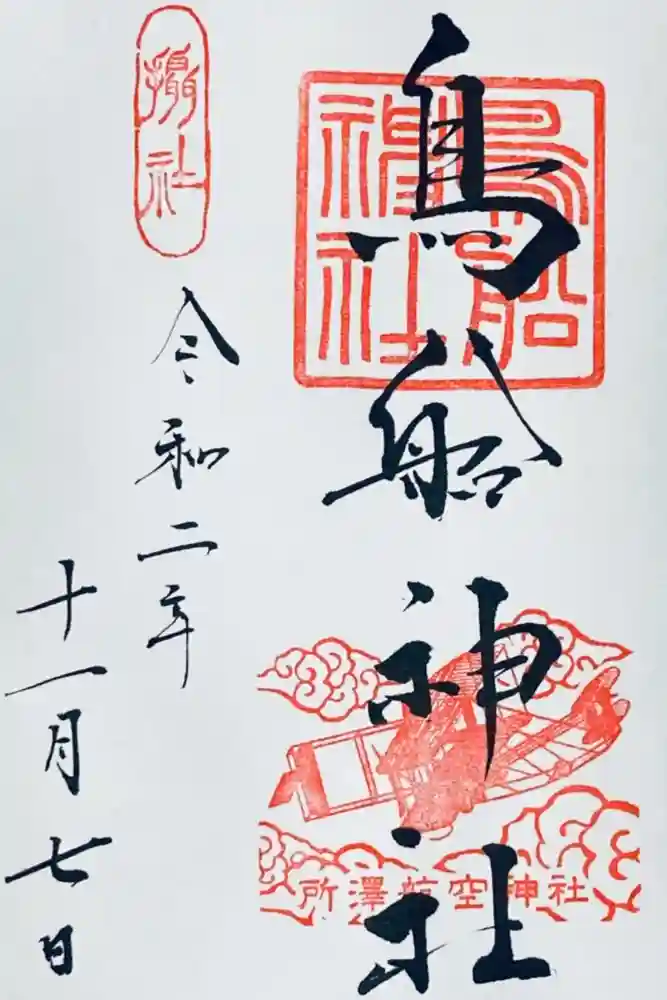 鳥船神社
鳥船
神社
所澤航空神社
摂社
令和二年
十一月七日